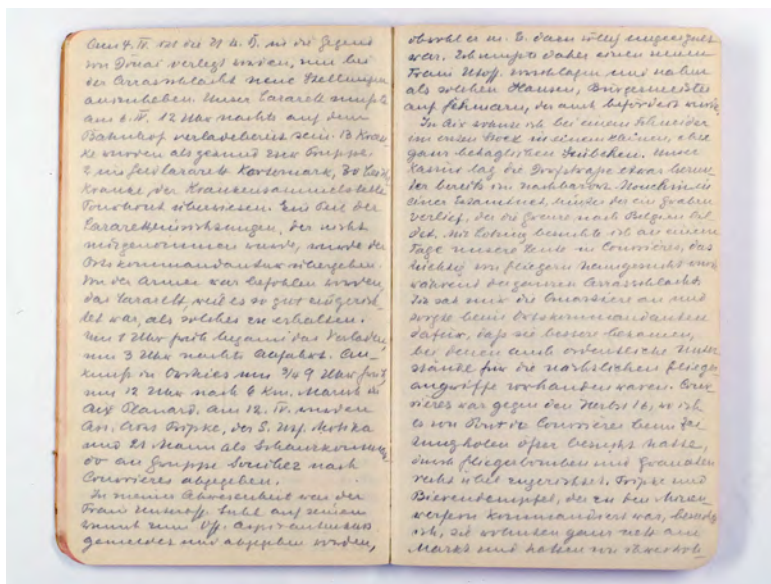 Am 7. IV. ist die 21 h. D. in die Gegend
von Douai verlegt worden, um bei
der Arrasschlacht neue Stellungen
auszuheben. Unser Lazarett mußte
am 6. IV. 12 Uhr nachts auf dem
Bahnhof verladebereit sein. 13 Kran-
ke wurden als gesund zur Truppe,
2 ins Feldlazarett Kortemark, 30
Kranke der Krankensammelstelle
Thourout überwiesen. Ein Teil der
Lazaretteinrichtungen, der nicht
mitgenommen wurde, wurde der
Ortskommandantur übergeben.
Von der Armee war befohlen worden,
das Lazarett, weil es so gut eingerich-
tet war, als solches zu erhalten.
Um 1 Uhr früh begann das Verladen,
um 3 Uhr nachts Abfahrt. An-
kunft in Orchies um 3/4 9 Uhr früh,
um 12 Uhr nach 6 km. Marsch in
Aix Am 12. IV. wurden
Ass. Arzt Fripke, der S. Utf.
und 21 Mann als Schanzkomman-
do an Gruppe Souchez nach
Courrières abgegeben.
In meiner Abwesenheit war der
Train Unteroff. auf seinen
Wunsch zum Off. Aspirantenkurs
gemeldet und abgegeben worden,
obwohl er m. E. dazu völlig ungeeignet
war. Ich mußte daher einen neuen
Train Utoff. vorschlagen und nahm
als solchen Hansen, Bürgermeister
auf Fehmarn, der auch befördert wurde.
In Aix wohnte ich bei einem Schneider
im ersten Stock in einem kleinen, aber
ganz behaglichen Stübchen. Unser
Kasino lag die Dorfstrape etwas
der bereits im Nachbarort Mouchin in
einer Estaminet, hinter der ein Graben
verlief, der die Grenze nach Belgien bil-
det. Mit besuchte ich an einem
Tage unsere Leute in Courrières, das
von Fliegern heimgesucht wurde
während der ganzen Arrasschlacht.
Ich sah mir die Quartiere an und
sorgte beim Ortskommandanten
dafür, daß sie bessere bekamen,
bei denen auch ordentliche Unter-
stände für die nächtlichen Flieger-
angriffe vorhanden waren. Cour-
rières war gegen den Herbst 16, wo ich
es von Pont de Courrières beim
öfter besucht hatte,
durch Fliegerbomben und Granaten
recht übel zugerichtet. Fripke und
Bierendempfel, der zu den Minen-
werfern kommandiert war, besuchte
ich, sie wohnten ganz nett am
Markt und hatten